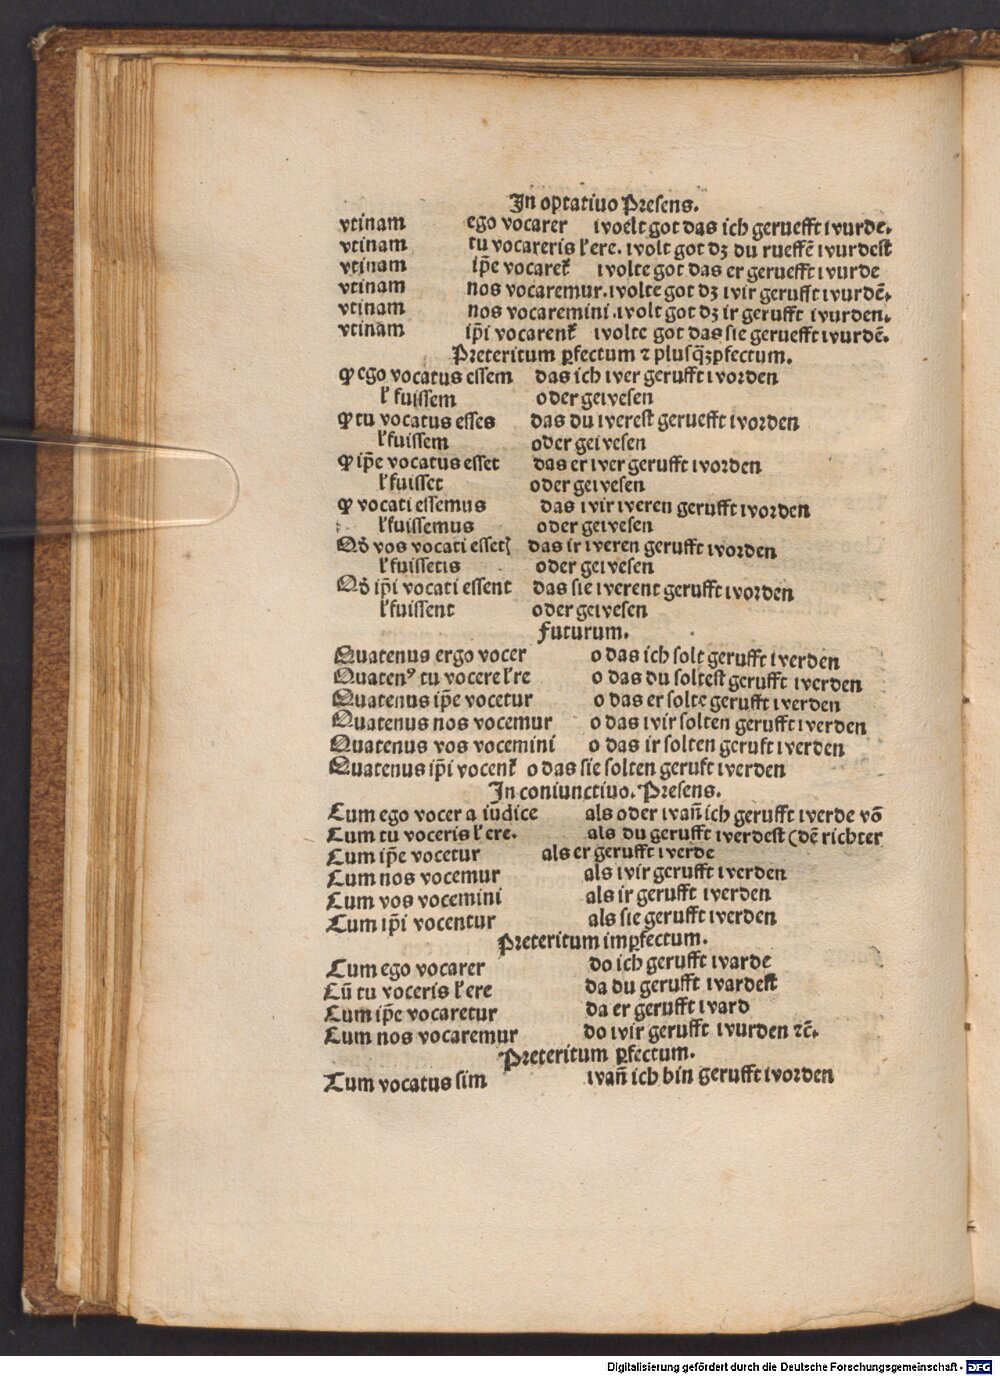 In optatiuo Presens.
vtinam ego vocarer woelt got das ich geruefft wurde.
vtinam tu vocareris ł ere. wolt got dʒ du rueffẽ wurdest
vtinam ip̃e vocaret᷑ wolte got das er geruefft wurde
vtinam nos vocaremur. wolte got dʒ wir gerufft wurdẽ.
vtinam nos vocaremini. wolt got dʒ ir gerufft wurden.
vtinam ip̃i vocarent᷑ wolte got das sie geruefft wurdẽ.
Preteritum ꝑfectum ⁊ plusq̃ʒꝑfectum.
ꝙ ego vocatus essem das ich wer gerufft worden
ł fuissem oder gewesen
ꝙ tu vocatus esses das du werest geruefft worden
ł fuissem oder gewesen
ꝙ ip̃e vocatus esset das er wer gerufft worden
ł fuisset oder gewesen
ꝙ vocati essemus das wir weren gerufft worden
ł fuissemus oder gewesen
Qđ vos vocati essetꝭ das ir weren gerufft worden
ł fuissetis oder gewesen
Qđ ip̃i vocati essent das sie werent gerufft worden
ł fuissent oder gewesen
futurum.
Quatenus ergo vocer o das ich solt gerufft werden
Quatenꝰ tu vocere ł re o das du soltest gerufft werden
Quatenus ip̃e vocetur o das er solte gerufft werden
Quatenus nos vocemur o das wir solten gerufft werden
Quatenus vos vocemini o das ir solten geruft werden
Quatenus ip̃i vocent᷑ o das sie solten geruft werden
In coniunctiuo. Presens.
Cum ego vocer a iudice als oder wañ ich gerufft werde võ
Cum tu voceris ł ere. als du gerufft werdest (dẽ richter
Cum ip̃e vocetur als er gerufft werde
Cum nos vocemur als wir gerufft werden
Cum vos vocemini als ir gerufft werden
Cum ip̃i vocentur als sie gerufft werden
Preteritum imꝑfectum.
Cum ego vocarer do ich gerufft warde
Cũ tu voceris ł ere da du gerufft wardest
Cum ip̃e vocaretur da er gerufft ward
Cum nos vocaremur do wir gerufft wurden ⁊c̃.
Preteritum ꝑfectum.
Cum vocatus sim wañ ich bin gerufft worden
Digitalisierung gefördert durch die Deutsche Forschungsgemeinschaft - DFG